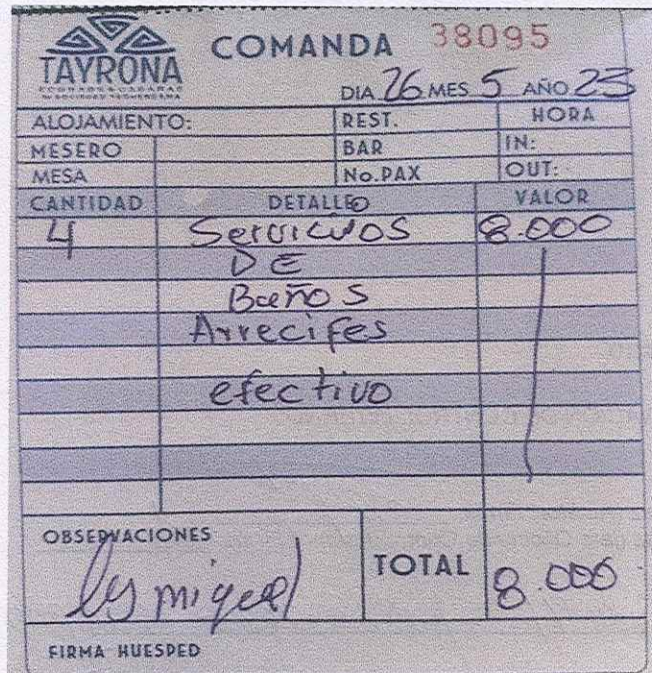 TAYRONA
COMANDA 38095
DIA 26 MES 5 AÑO 23
ALOJAMIENTO: REST. HORA
MESERO BAR IN:
MESA No. PAX OUT:
CANTIDAD DETALLE VALOR
4 Servicios 8.000
DE
Baños
Arrecifes
efectivo
OBSERVACIONES
miguel
TOTAL 8.000
FIRMA HUESPED